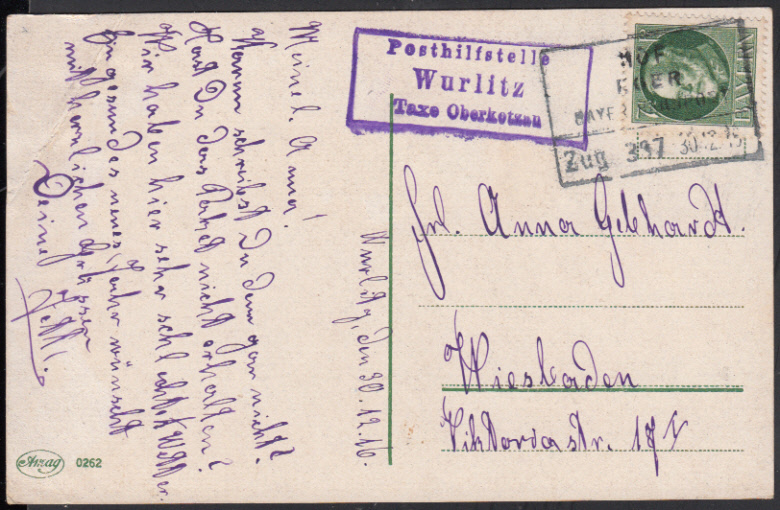 Meine l. Anna!
Warum schreibst Du denn gar nicht?
Hast Du das Paket nicht erhalten?
Wir haben hier sehr schlechtes Wetter.
Ein gesundes neues Jahr wünscht
mit herzlichen Grüssen
Deine
Wurlitz, den 30.12.16.
Posthilfstelle
Wurlitz
Taxe Oberkotzau
HOF
EGER
Zug 397 30.12.16
BAYERN
Frl. Anna Gebhardt.
Wiesbaden
Viktoriastr.
Arzag 0262